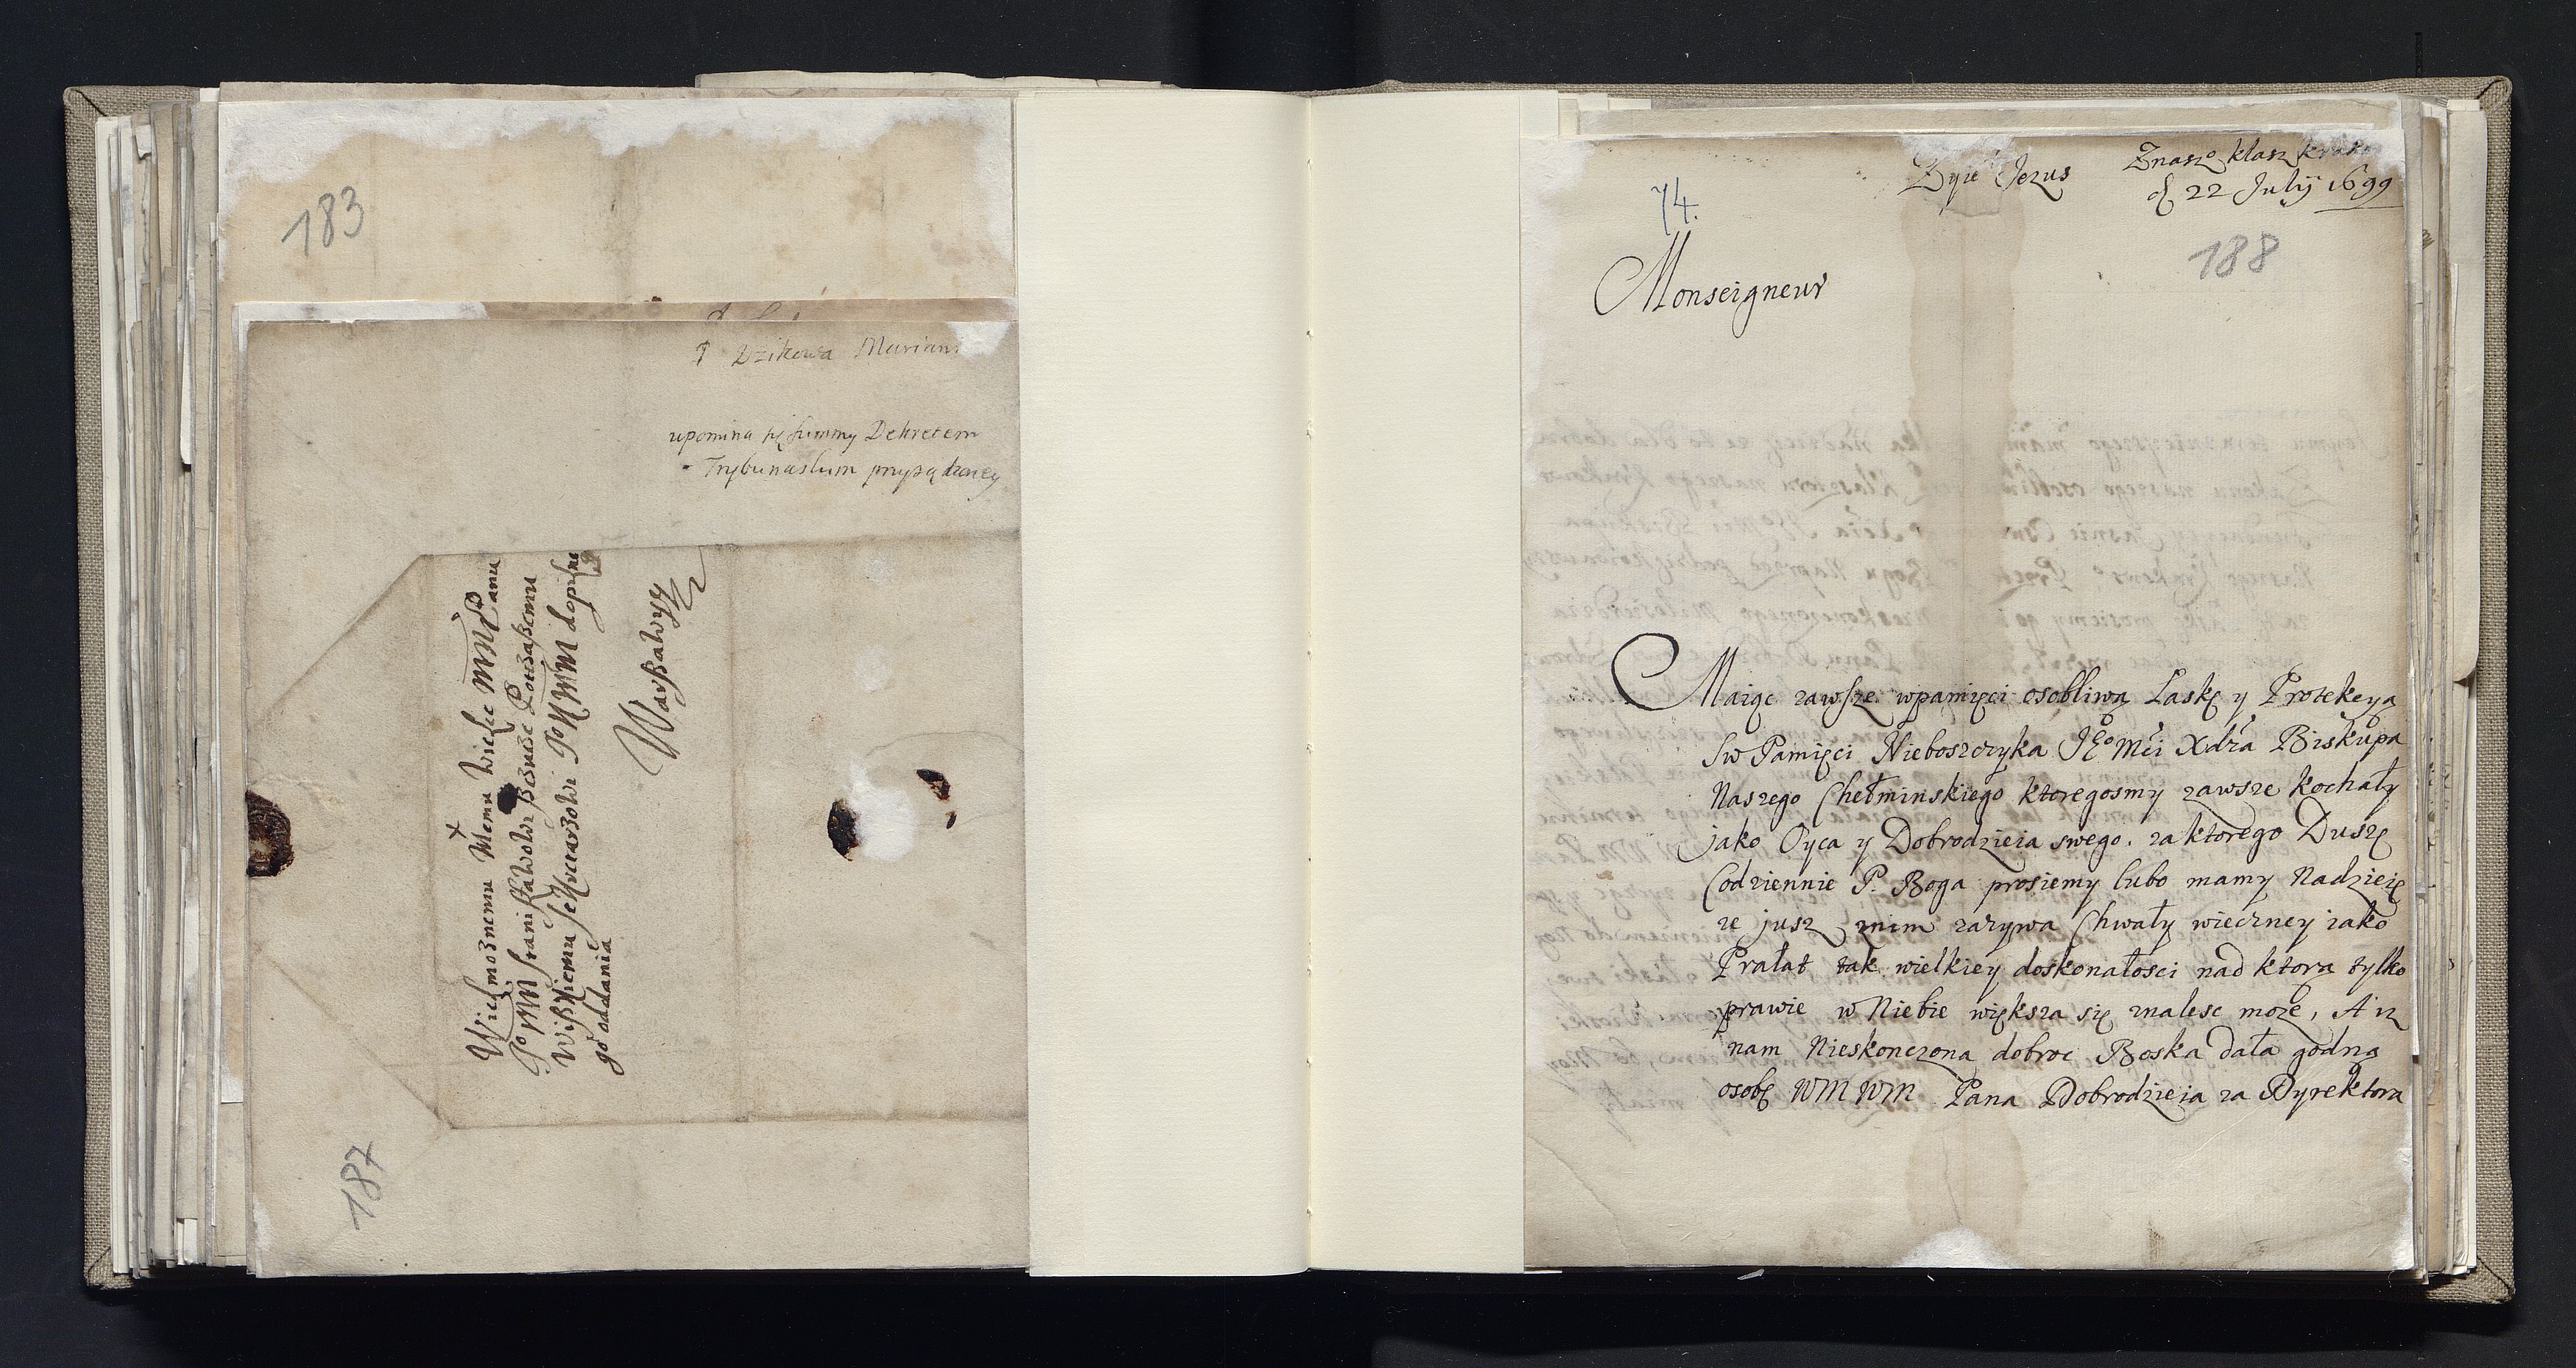 183
Dzikowa Mariam
upomina się summy Dekretem
Trybunalskim przysądzoney
Wielmoznemu Memu Wielce MM Panu
Je° MM
Sekretarzowi Je° MMM do pilne
go oddania
Warszawy
187
Zyie Jezus
Znasz° klasz krako
d 22 Julij 1699
74.
188
Monseigneur
Maiąc zawsze wpamięci osobliwą Laskę y Protekcyą
Sw Pamięci Nieboszczyka Jego Mści Xdza Biskupa
Naszego Chełminskiego ktoregosmy zawsze kochały
jako Oyca y Dobrodzieia swego. za ktorego Duszę
Codziennie P. Boga prosiemy lubo mamy Nadzieię
ze jusz znim zazywa Chwały wieczney iako
Prałat tak wielkiey doskonałosci nad ktora tylko
prawie w Niebie większa się znalesc może, A iz
nam Nieskonczona dobroc Boska dała godną
osobę WM WM Pana Dobrodzieia za Dyrektora